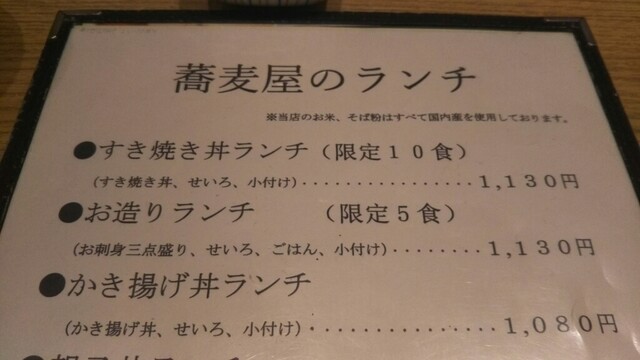 蕎麦屋のランチ
※当店のお米、そば粉はすべて国内産を使用しております。
●すき焼き丼ランチ（限定１０食）
（すき焼き丼、せいろ、小付け）・・・・・・・・・・・・・・・・・１,１３０円
●お造りランチ　　（限定５食）
（お刺身三点盛り、せいろ、ごはん、小付け）・・・・・・・・１,１３０円
●かき揚げ丼ランチ
（かき揚げ丼、せいろ、小付け）・・・・・・・・・・・・・・・・・１,０８０円